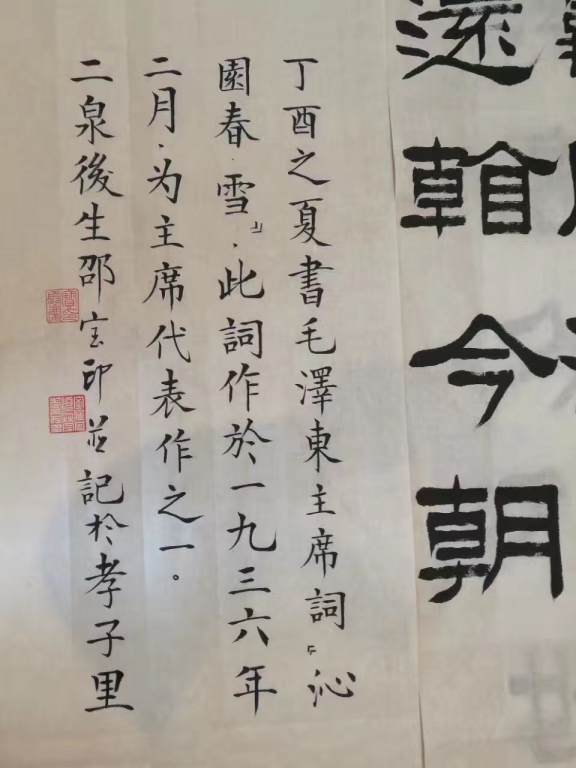 還看今朝
丁酉之夏書毛澤東主席詞『沁
園春·雪』.此詞作於一九三六年
二月.为主席代表作之一。
二泉後生邵宝印並記於孝子里